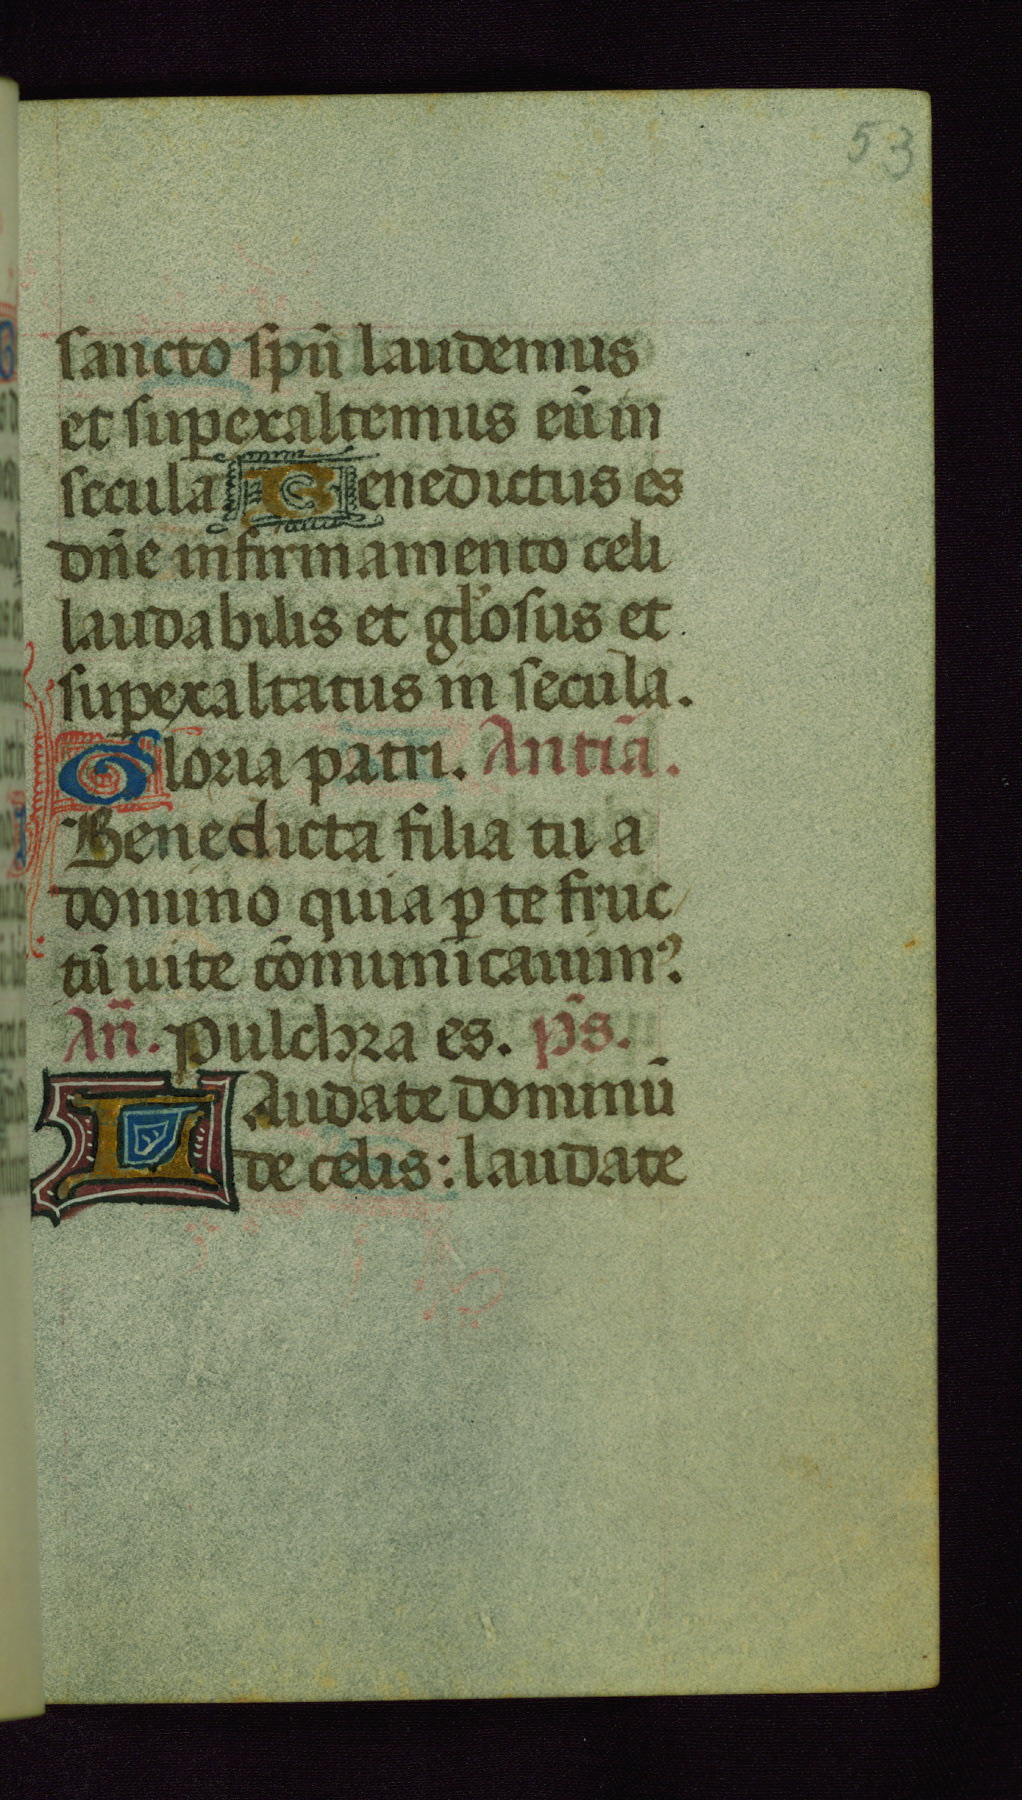 53
sancto spũ laudemus
et supexaltemus eũ in
secula Benedictus es
dñe in firmamento celi
laudabilis et gľosus et
supexaltatus in secula.
Gloria patri. Antiã.
Benedicta filia tu a
domino quia p te fruc
tũ uite cõmunicauim9.
Añ. Pulchra es. p̃s.
LAudate dominũ
de celis: laudate